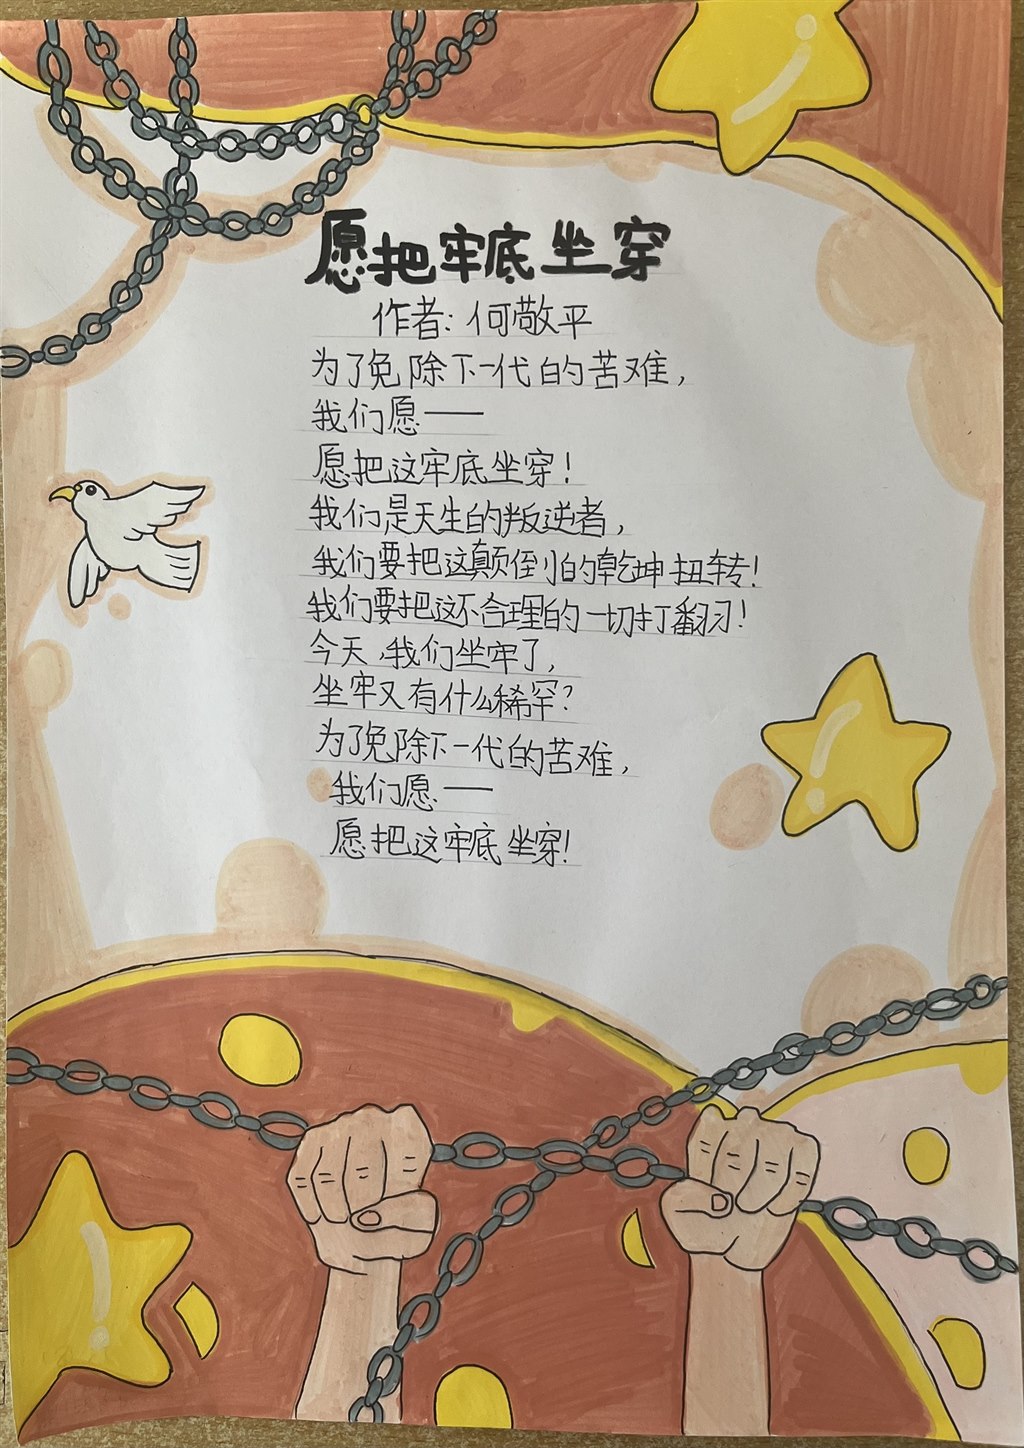 愿把牢底坐穿
作者:何敬平
为了免除下一代的苦难,
我们愿——
愿把这牢底坐穿!
我们是天生的叛逆者,
我们要把这颠倒的乾坤扭转!
我们要把这不合理的一切打翻!
今天,我们坐牢了,
坐牢又有什么稀罕?
为了免除下一代的苦难,
我们愿——
愿把这牢底坐穿!